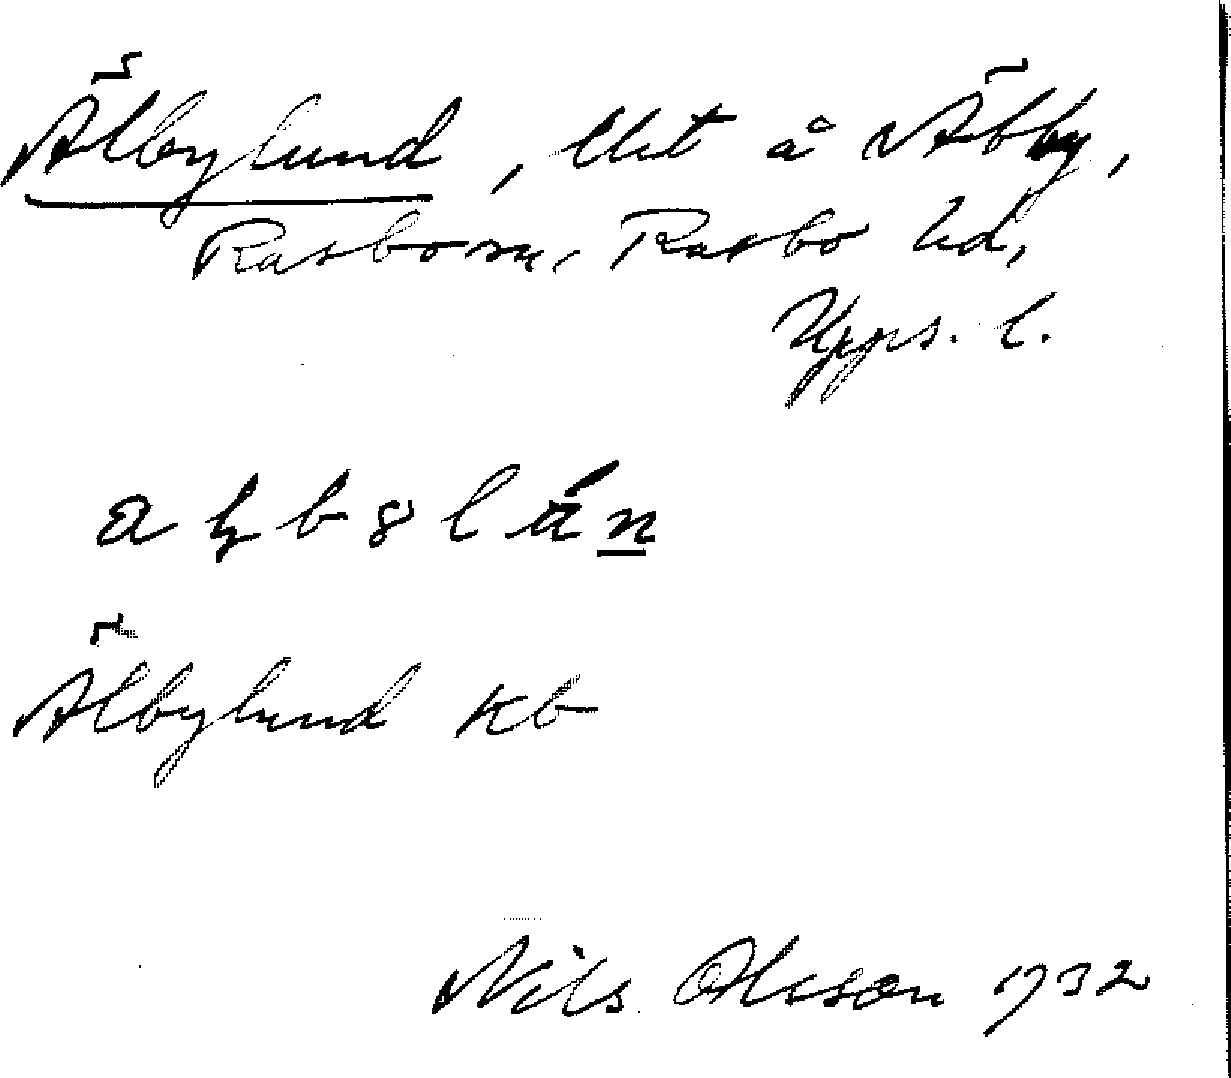 Älbylund, lht å Åbby,
Rasbo sn, Rasbo hd,
Upps. l.
Älbylund Kb
Nils Olsson 1932